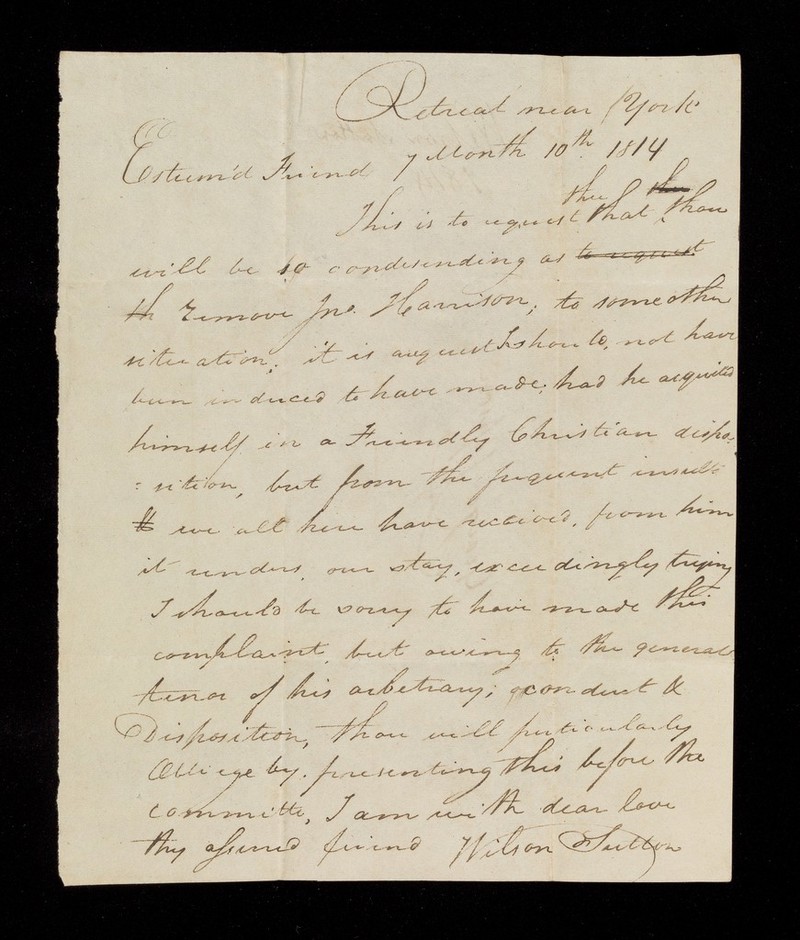 Retreat near York
Esteem'd Friend 7 Month 10th 1814
This is to request the that the thou
will be so condesending as to request
th remove Jno. Harrison; to some other
situation; it is a request I should, not have
been induced to have made; had he acquited
himself in a Friendly Christian dispo=
=sition, but from the frequent insult
we all here have received, from him
it renders, our stay, exceedingly trying
I should be sorry to have made this
complaint, but owing to the general
tenor of his arbetrary; conduct &
Disposition, thou will perticularly
Obliege by. presenting this before the
committe, I am with dear love
thy assured friend Wilson Sutton